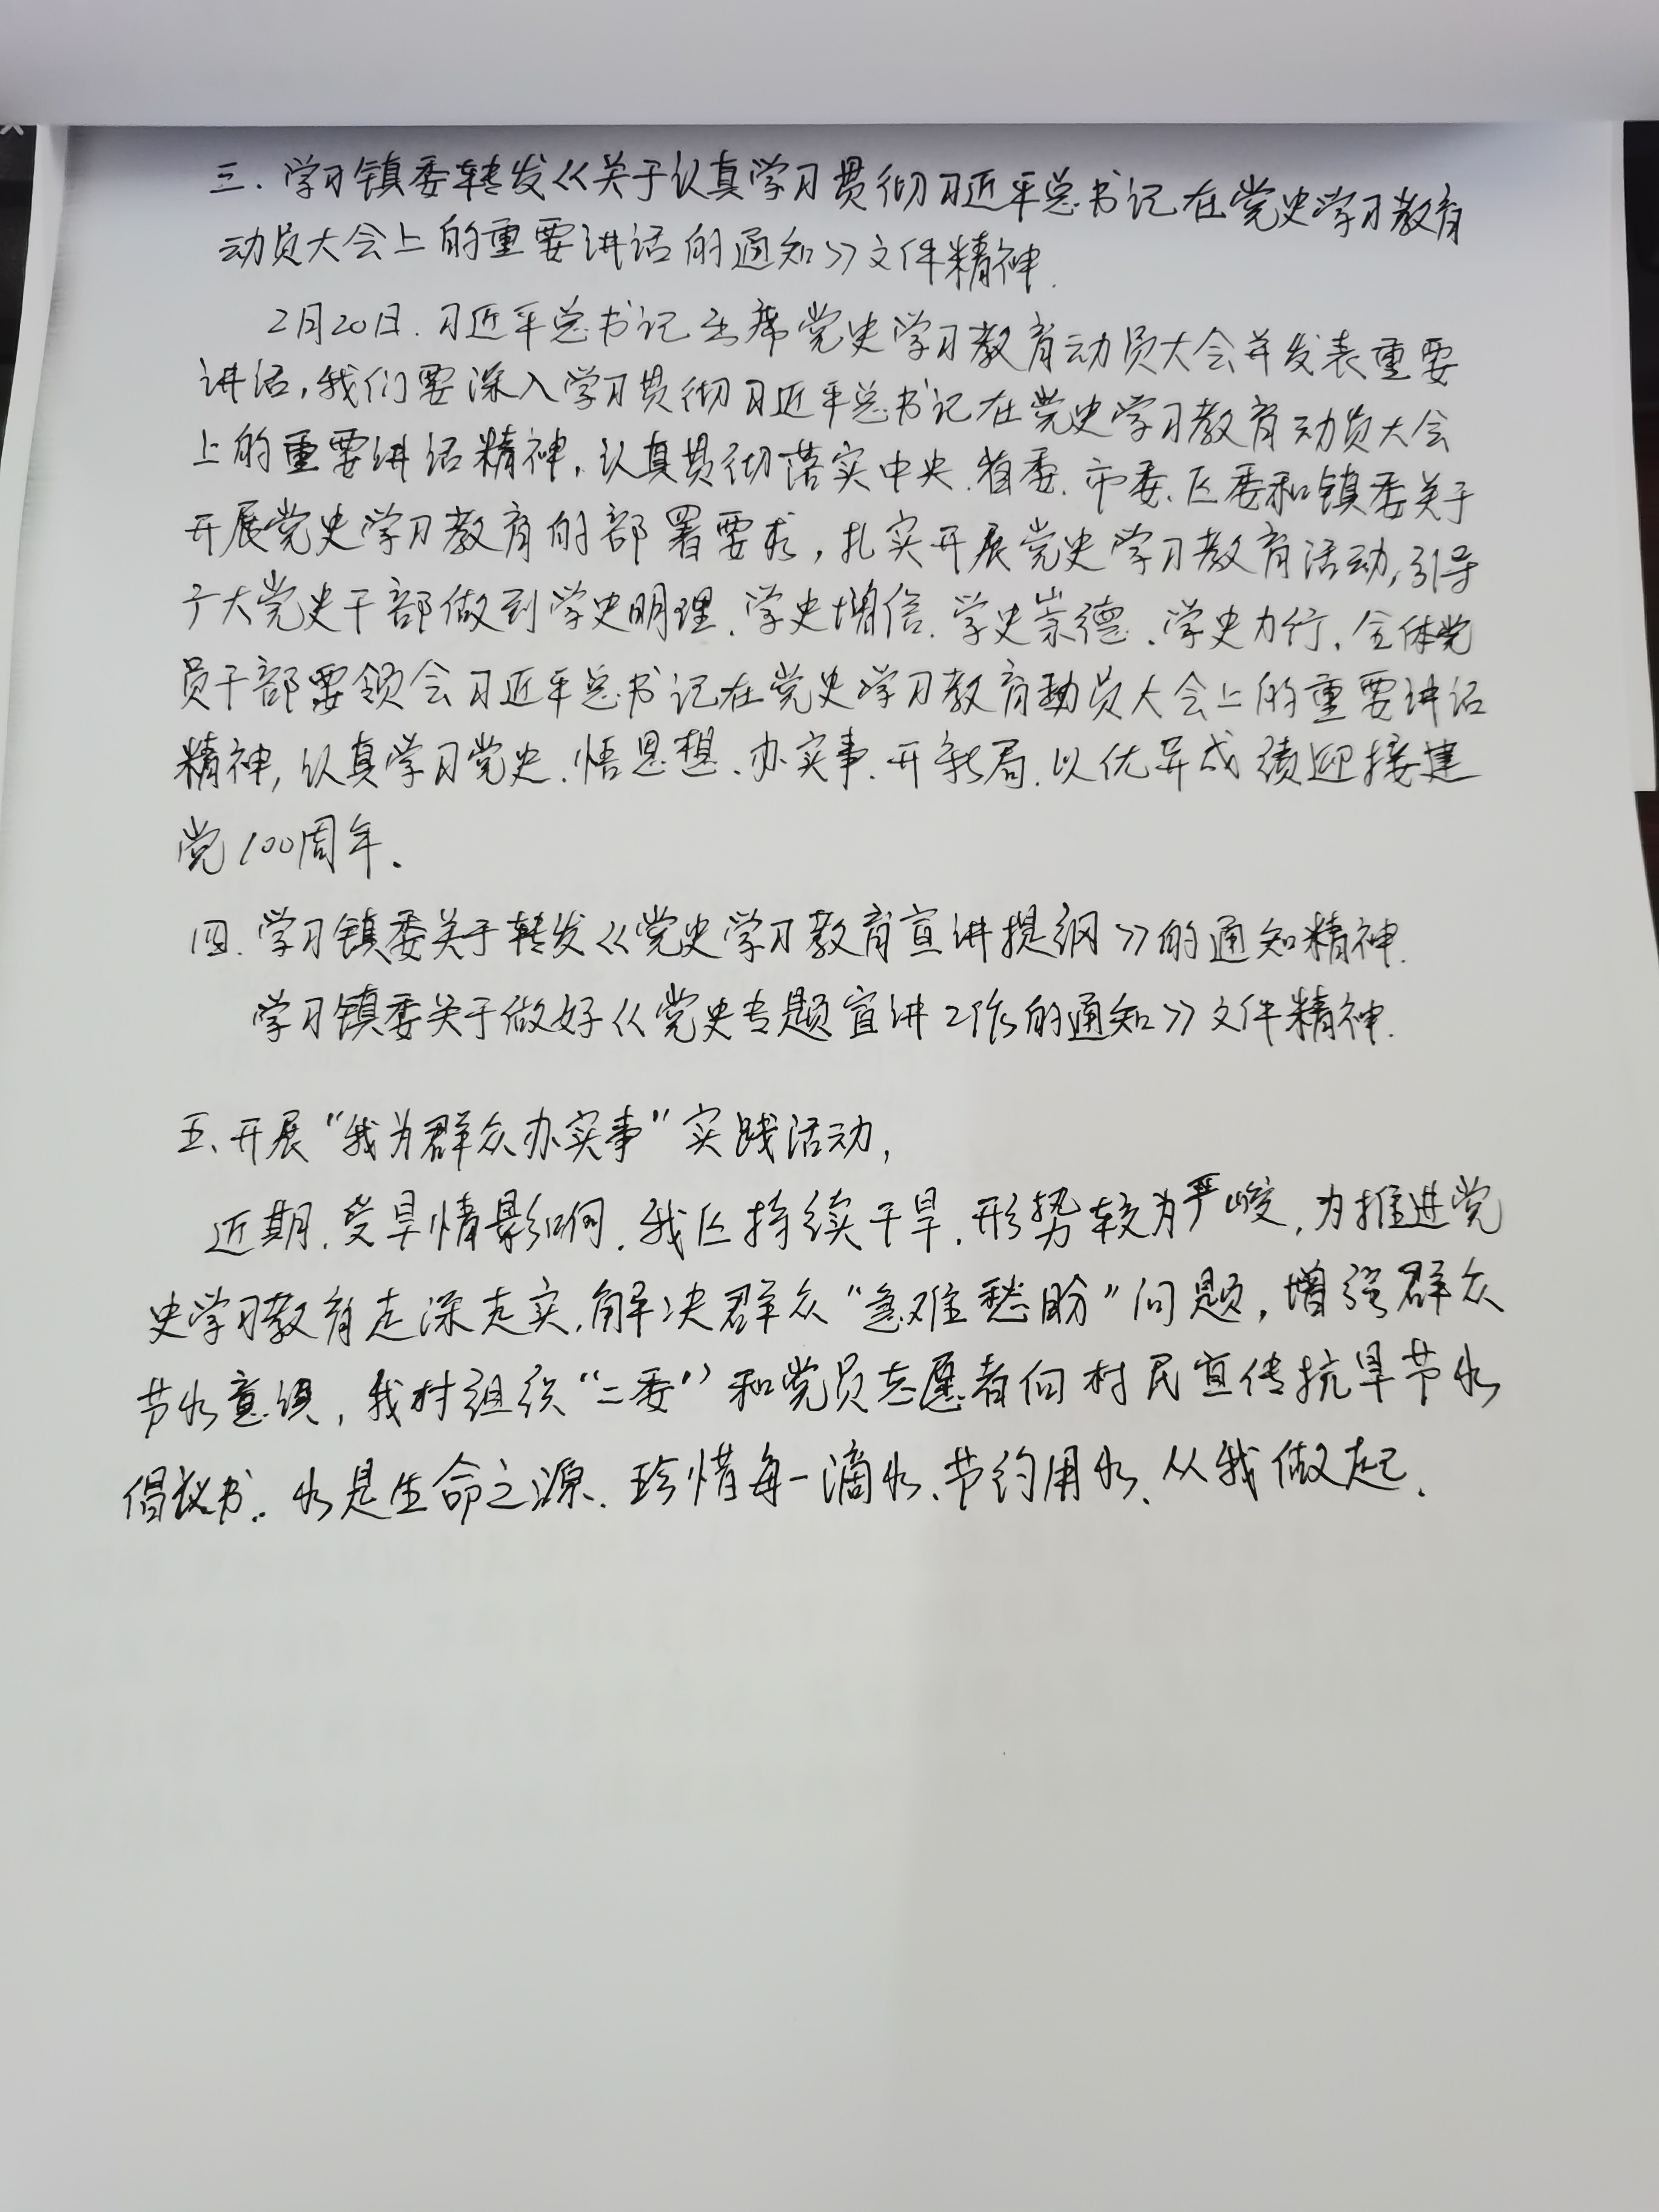 三.学习镇委转发《关于认真学习贯彻习近平总书记在党史学习教育
动员大会上的重要讲话的通知》文件精神.
2月20日.习近平总书记出席党史学习教育动员大会并发表重要
讲话,我们要深入学习贯彻习近平总书记在党史学习教育动员大会
上的重要讲话精神,认真贯彻落实中央.省委.市委、区委和镇委关于
开展党史学习教育的部署要求,扎实开展党史学习教育活动,引导
广大党史干部做到学史明理、学史增信.学史崇德、学史力行.全体党
员干部要领会习近平总书记在党史学习教育动员大会上的重要讲话
精神,认真学习党史.悟思想、办实事.开新局.以优异成绩迎接建
党100周年.
四.学习镇委关于转发《党史学习教育宣讲提纲》的通知精神.
学习镇委关于做好《党史专题宣讲工作的通知》文件精神.
五、开展“我为群众办实事”实践活动,
近期.受旱情影响.我区持续干旱.形势较为严峻,为推进党
史学习教育走深走实.解决群众“急难愁盼”问题,增强群众
节水意识,我村组织“二委”和党员志愿者向村民宣传抗旱节水
倡议书.水是生命之源.珍惜每一滴水、节约用水、从我做起.